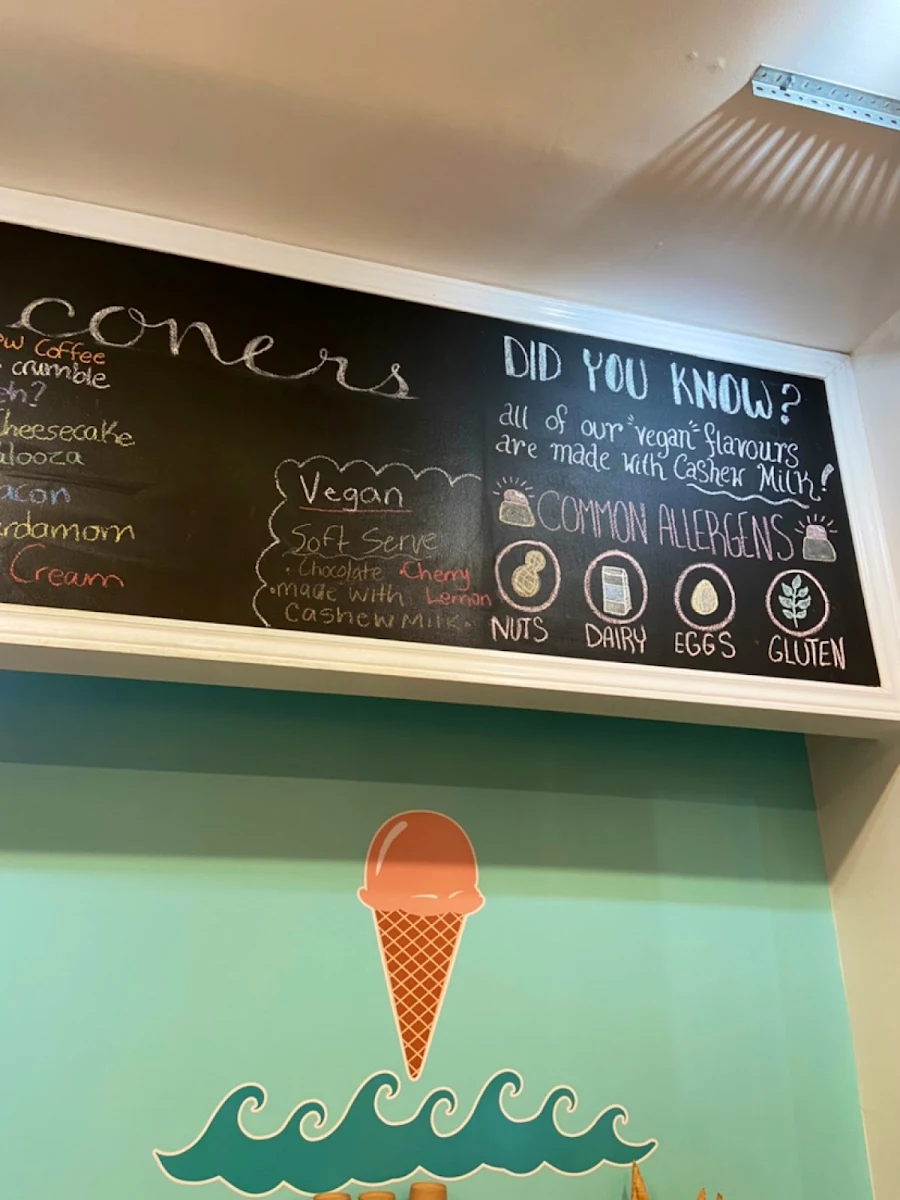 coners
Coffee
crumble
eh?
Cheesecake
alooza
acon
rdamom
Cream
Vegan
Soft Serve
• Chocolate • Cherry
• made with Lemon
Cashew Milk •
DID YOU KNOW?
all of our "vegan" flavours
are made with Cashew Milk!
COMMON ALLERGENS
NUTS DAIRY EGGS GLUTEN